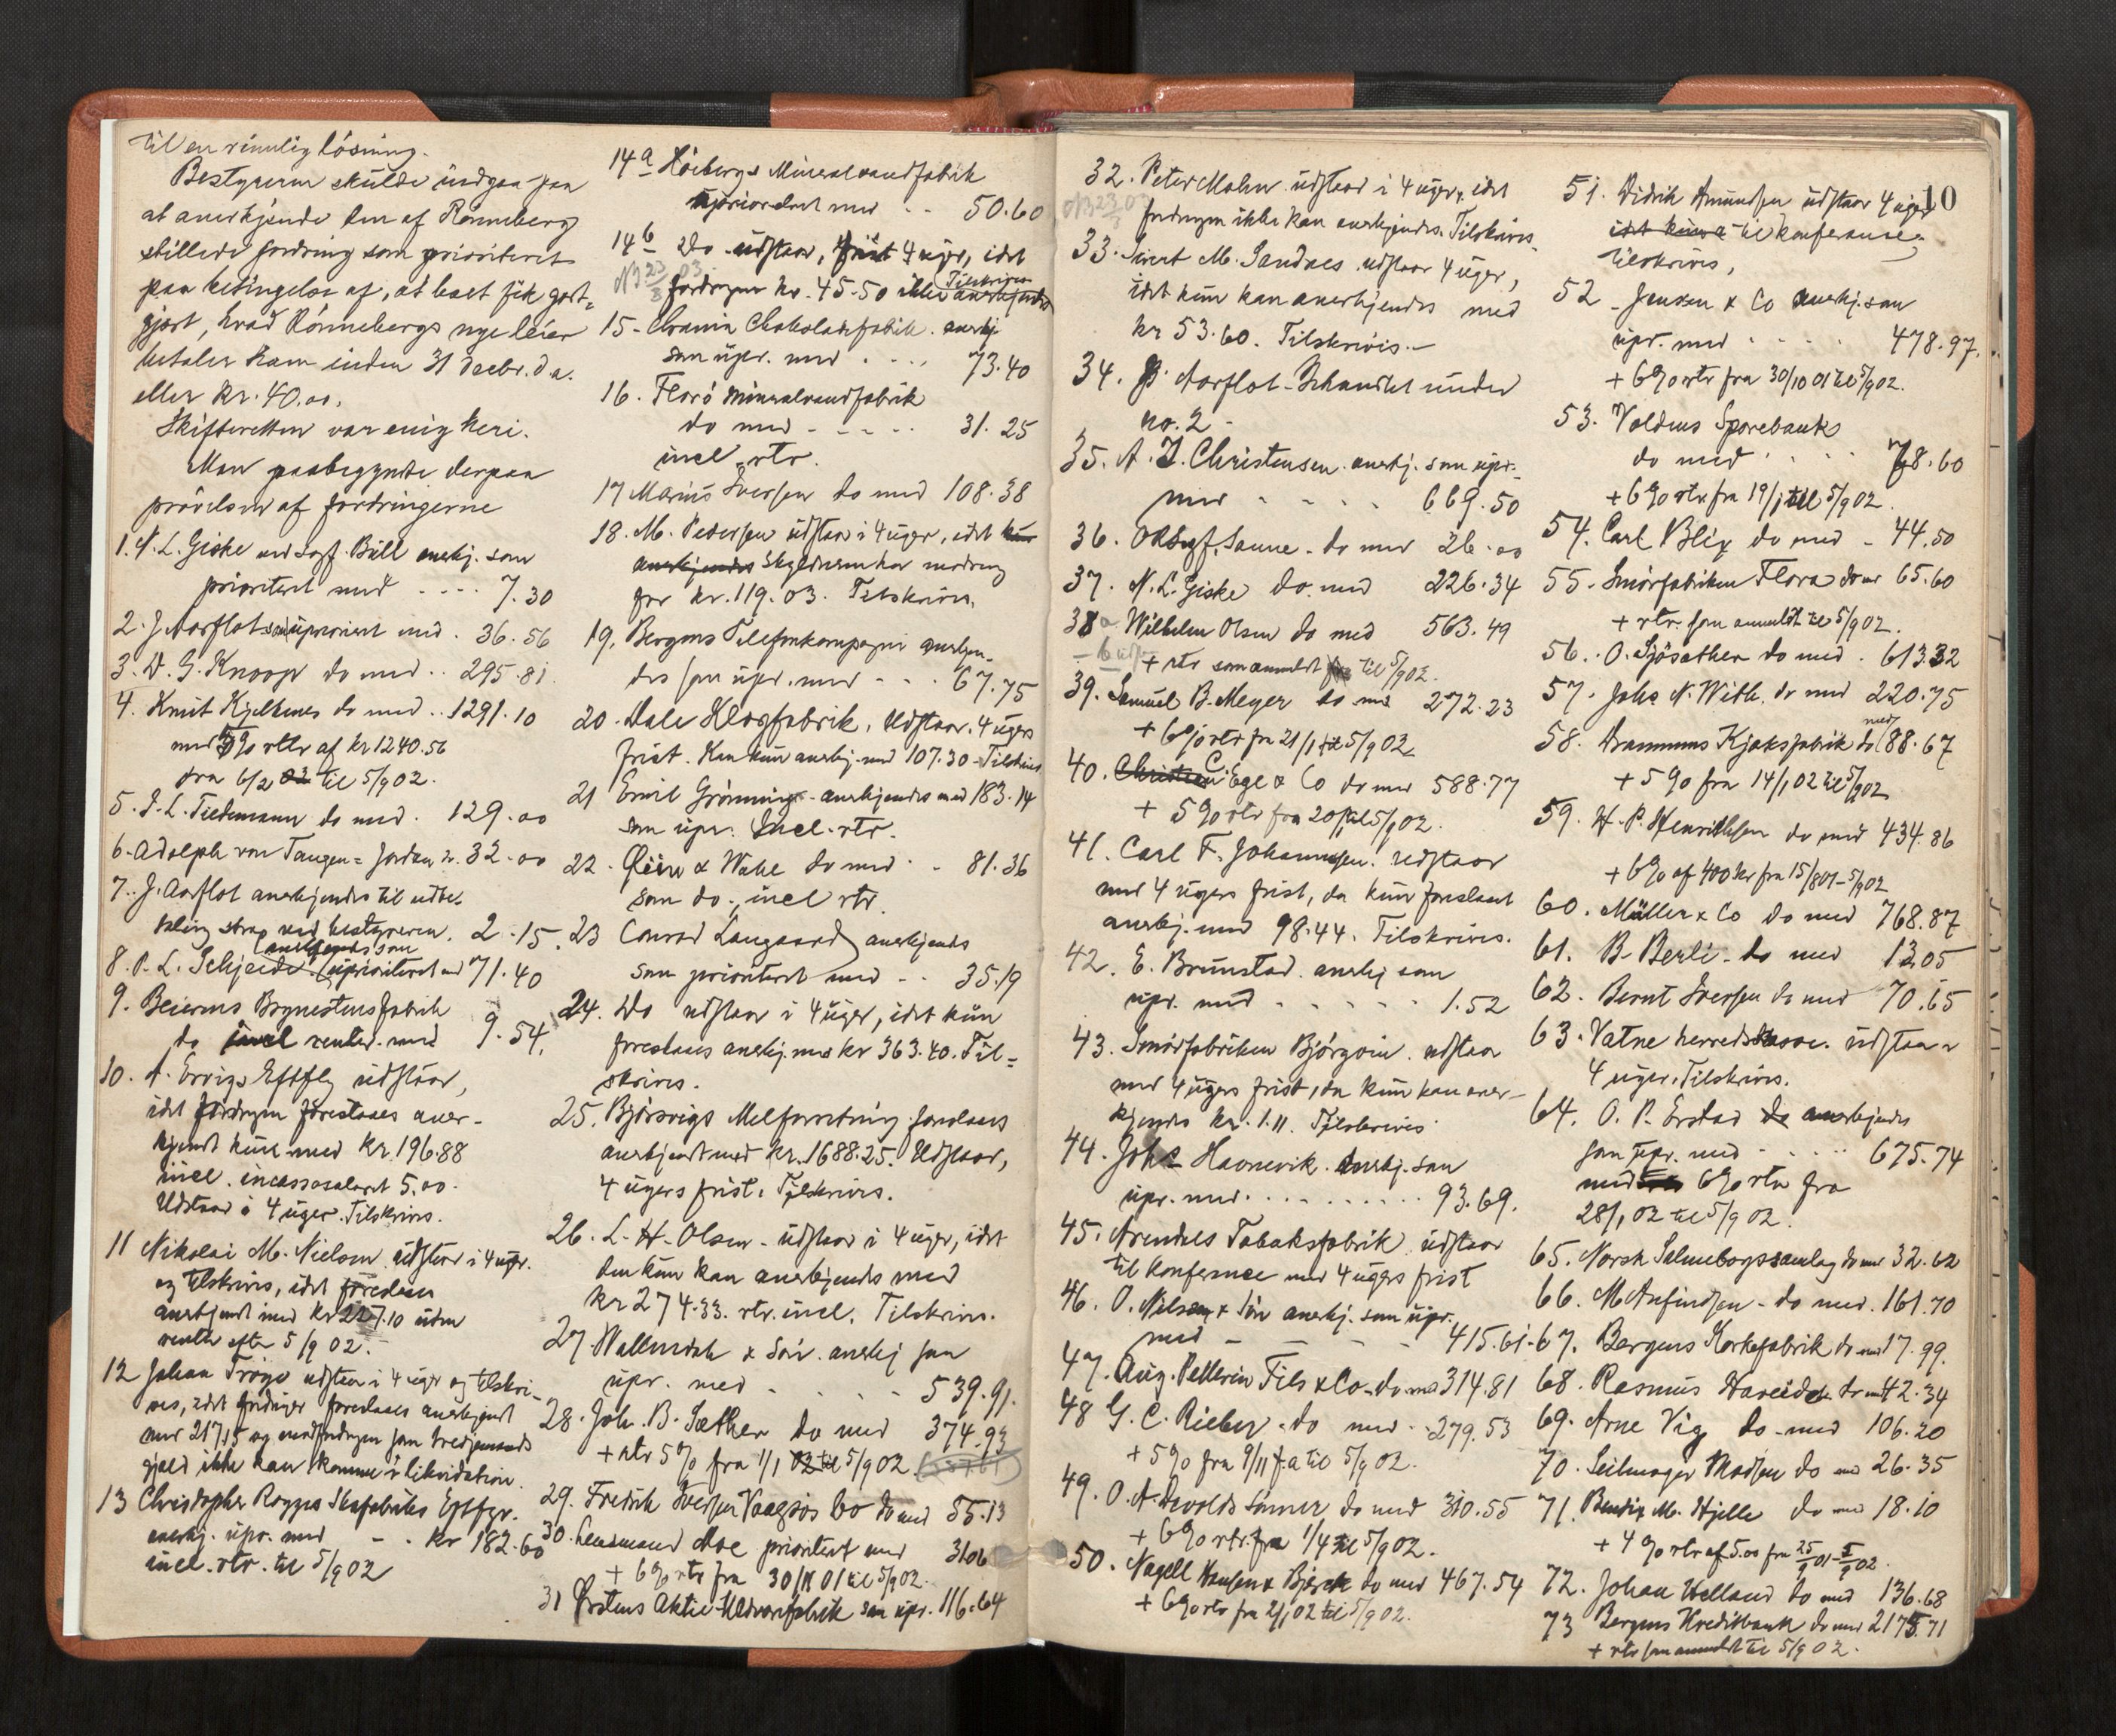 til en rimelig løsning.
Bestyreren skulde indgaa paa
at anerkjende den af Rønneberg
stillede fordring som prioriteret
paa betingelse af, at boet fik godt=
gjort, hvad Rønnebergs nye leier
betaler ham inden 31 decbr. d.a.
eller kr. 40.00.
Skifteretten var enig heri.
Man paabegyndte derpaa
prøvelsen af fordringerne
1. N. L. Giske ved Sagf. Bull anerkj. som
prioritert med .... 7.30
2. J. Aarflot som uprioriert med . 36.56
3. D. G. Knoop do med .. 295.81
4. Knut Kjelkenes do med .. 1291.10
med 5% rtr af kr 1240.56
fra 6/2 02 til 5/9 02.
5. J. L. Tiedemann do med . 129.00
6. Adolph von Tangen = Jordan 32.00
7. J. Aarflot anerkjendes til udbe-
taling strax ved bestyreren. 2.15
anerkjendes som
8. P. L. Schjeide uprioriteret med 71.40
9. Beierens Brynestensfabrik
do incl renter med 9.54.
10. A. Eftflg udstaar,
idet fordringen foreslaaes aner-
kjendt kun med kr. 196.88
incl. incassosalaret 5.00.
Udstaar i 4 uger. Tilskrives.
11 Nikolai M. Nielsen udstaar i 4 uger.
og tilskrives, idet foreslaaes
anerkjendt med kr 227.10 uden
renter efter 5/9 02.
12 Johan udstaar i 4 uger og tilskri-
ves, idet fordringen foreslaaes anerkjendt
med 217.15 og modfordringen som tredjemands
gjæld ikke kan komme i likvidation.
13 Christopher Eftfgr.
anerkj. upr. med - . kr 182.60
incl. rtr. til 5/9 02
14a Höibergs Mineralvandfabrik
uprioriteret med .. 50.60
14b Do udstaar, frist 4 uger, idet
NB 23/3 03.
fordringen kr. 45.50 ikke anerkjendes
Tilskrives
15. Chokoladefabrik. anerkj.
som upr. med .... 73.40
16. Florø mineralvandfabrik
do med ..... 31.25
incl. rtr.
17 Marius Iversen do med 108.38
18. M. Pedersen udstaar i 4 uger, idet kun
anerkjendes Skyldneren har modkrav
for kr. 119.03. Tilskrives.
19. Bergens Telefonkompagni anerkjen-
des som upr. med ... 67.75
20. Dale Klogfabrik, udstaar. 4 ugers
frist. Kan kun anerkj. med 107.30. Tilskrives
21 Emil Grønning - anerkjendes med 183.14
som upr. Incl. rtr.
22. & do med . . 81.36
som do., incl rtr.
23 Conrad Langaard anerkjendes
som prioriteret med .. 35.19
24. Do udstaar i 4 uger, idet kun
foreslaaes anerkj. med kr 363.40. Til=
skrives.
25. Bjørsvigs Melforretning foreslaaes
anerkjendt med kr. 1688.25. Udstaar,
4 ugers frist. Tilskrives.
26. L. H. Olsen - udstaar i 4 uger, idet
den kun kan anerkjendes med
kr 274.33. rtr. incl. Tilskrives.
27 Wallendahl & Søn. anerkj som
upr. med . . . . . 539.91.
28. Joh. B. Sæther do med 374.93
+ rtr 5% fra 1/1 02 til 5/9 02
29. Fredrik Iversen Vaagsøs bo do med 55.13
30. Lensmand Moe prioritert med 31.06
+ 6% rtr fra 30/11 01 til 5/9 02.
31 Ørstens Aktie Uldvarefabrik som upr. 116.64
10
32. Peter Malm udstaar i 4 uger, idet
NB 23/3 03
fordringen ikke kan anerkjendes. Tilskrives.
33. Sivert M. Sandnes. udstaar 4 uger,
idet kun kan anerkjendes med
kr 53.60. Tilskrives.
34. J. Aarflot. behandlet under
no. 2.
35. A. J. Christensen. anerkj. som upr.
med - - - - . 669.50
36. O.R.Sagf. Sanne. do med 26.00
37. N. L. Giske do. med 226.34
38a Wilhelm Olsen do med 563.49
- b
+ rtr som anmeldt til 5/9 02.
39. Samuel B. Meyer do med 272.23
+ 6% rtr fra 21/1 til 5/9 02
40. Christian C. Ege & Co do med 588.77
+ 5% rtr fra 20/1 til 5/9 02.
41. Carl F. Johannesen. udstaar
med 4 ugers frist, da kun foreslaaet
anerkj. med 98.44. Tilskrives.
42. E. Brunstad. anerkj som
upr. med - . . . . . 1.52
43. Smørfabriken Bjørgvin. udstaar
med 4 ugers frist, da kun kan aner-
kjendes kr. 1.11. Tilskrives
44. Johs Havnevik. Anerkj. som
upr. med .......... 93.69.
45. Arendals Tobaksfabrik udstaar
til konference med 4 ugers frist
46. O. Nilsen & Søn anerkj. som upr.
med - - - - 415.61
47. Aug. Pellerin Fils & Co. do med 314.81
48 G. C. Rieber. do med . 279.53
+ 5% fra 9/11 f.a til 5/9 02.
49. O. A. Devolds Sønner do med 310.55
+ 6% rtr. fra 1/4 til 5/9 02.
50. Nagell Hansen & Bjerck do med 467.54
+ 6% rtr fra 2/1 02 til 5/9 02.
51. Didrik Amundsen udstaar 4 uger
idet kun til konference.
Tilskrives,
52 Jensen & Co anerkj. som
upr. med . . . . 478.97.
+ 6% rtr fra 30/10 01 til 5/9 02.
53. Voldens Sparebank
do med . . . . 78.60
+ 6% rtr. fra 19/1 til 5/9 02.
54. Carl Blix do med - 44.50
55. Smørfabriken Flora do med 65.60
+ rtr. som anmeldt til 5/9 02.
56. O. Sjøsæther do med . 613.32
57. Johs N. With. do med 220.75
58. Drammens Kjæksfabrik do med 188.67
+ 5% fra 14/1 02 til 5/9 02
59. H. P. Henrikksen do med 434.86
+ 6% af 400 kr fra 15/8 01 - 5/9 02
60. Müller & Co do med 768.87
61. B. Berli - do med 13.05
62. Bernt Iversen do med 70.65
63. Vatne herredskasse. udstaar
4 uger. Tilskrives.
64. O. P. Erstad do anerkjendes
som upr. med - . . . . 675.74
med 6% rtr fra
28/1 02 til 5/9 02.
65. Norsk Salmebogssamlag do med 32.62
66. M Anfindsen - do med. 161.70
67. Bergens Korkefabrik do med 17.99.
68. Rasmus Hareide do med 42.34
69. Arne Vig do med 106.20
70. Seilmager Madsen do med 26.35
71. Bendix M. Hjelle do med 18.10
+ 4% rtr af 5.00 fra 25/9 01 - 5/9 02.
72. Johan Welland do med 136.68
73 Bergens Kreditbank do med 2175.71
+ rtr som anmeldt til 5/9 02.